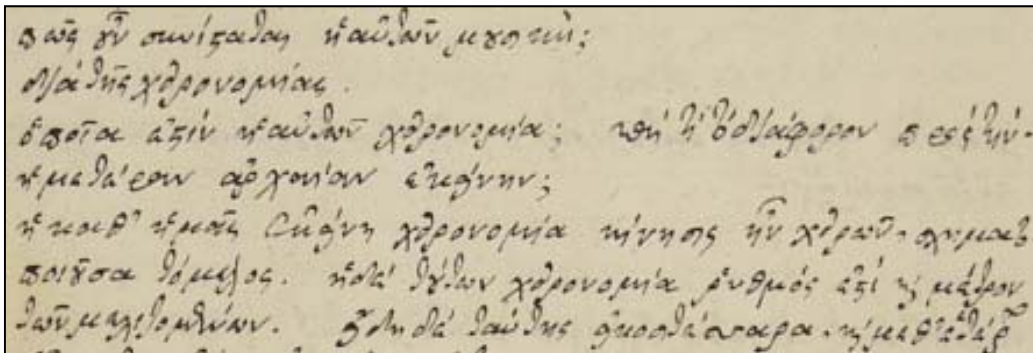 πῶς οὖν συνίσταται ἡ αὐτῶν μουσική;
διὰ τῆς χειρονομίας.
ὁποία ἐστὶν ἡ αὐτῶν χειρονομία; καὶ τί τὸ διάφορον πρὸς τὴν
ἡμετέραν ἀρχαίαν ἐκείνην;
ἡ καθ' ἡμᾶς ἐκείνη χειρονομία κίνησις ἦν χειρῶν, σχηματι
ποιοῦσα τὸ μέλος. ἡ δὲ τούτων χειρονομία ῥυθμός ἐστι καὶ μέτρον
τῶν μελιζομένων. ταύτης εἰκοσιτέσσαρα, καὶ μεθ'